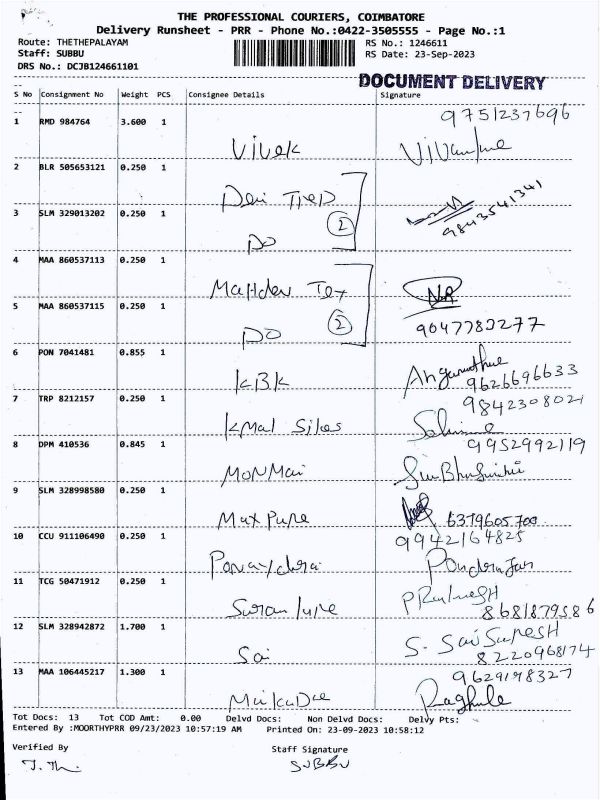 THE PROFESSIONAL COURIERS, COIMBATORE
Delivery Runsheet - PRR - Phone No.:0422-3505555 - Page No.:1
Route: THETHEPALAYAM RS No.: 1246611
Staff: SUBBU RS Date: 23-Sep-2023
DRS No.: DCJB124661101
DOCUMENT DELIVERY
S No Consignment No Weight PCS Consignee Details Signature
--
9751237696
1 RMD 984764 3.600 1
Vivek
2 BLR 505653121 0.250 1
Devi
9843541341
3 SLM 329013202 0.250 1
2
DO
4 MAA 860537113 0.250 1
Mahdev Tex
5 MAA 860537115 0.250 1
2
9047782277
DO
6 PON 7041481 0.855 1
KBK
9626696633
7 TRP 8212157 0.250 1
9842308021
Kmal Silks
8 DPM 410536 0.845 1
9952992119
MONMai
9 SLM 328998580 0.250 1
Max Pure
6379605700
10 CCU 911106490 0.250 1
9942164825
11 TCG 50471912 0.250 1
8681879586
12 SLM 328942872 1.700 1
S. Sai SuresH
Sai
8220968174
13 MAA 106445217 1.300 1
9629198327
Tot Docs: 13 Tot COD Amt: 0.00 Delvd Docs: Non Delvd Docs: Delvy Pts:
Entered By :MOORTHYPRR 09/23/2023 10:57:19 AM Printed On: 23-09-2023 10:58:12
Verified By Staff Signature
SUBBU